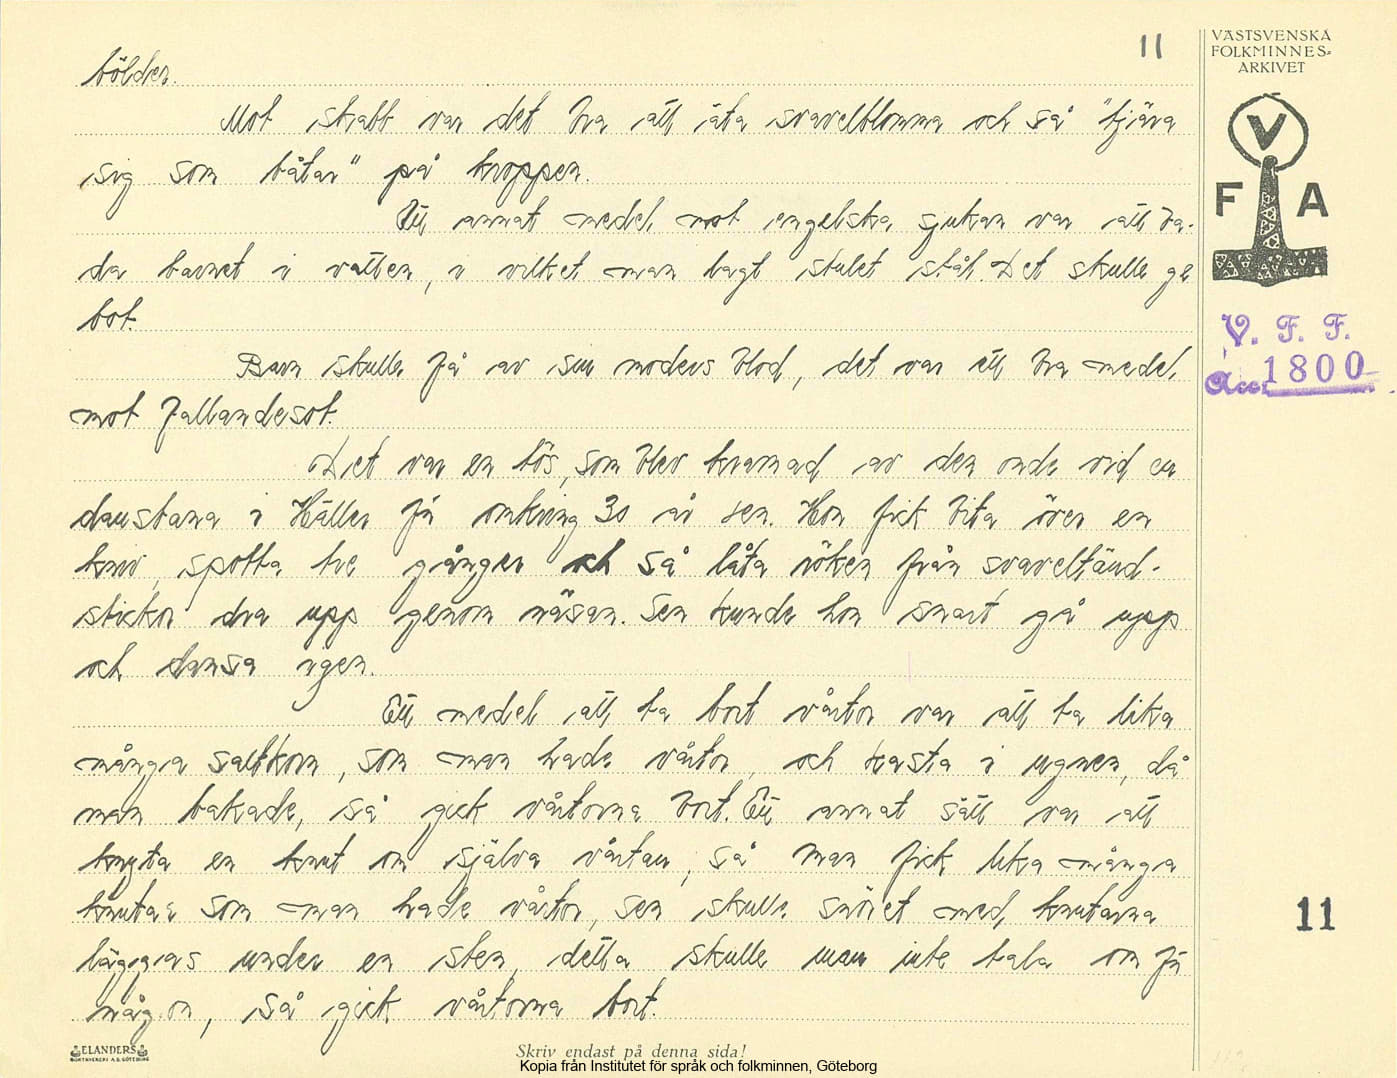 11
VÄSTSVENSKA
FOLKMINNES-
ARKIVET
V
F A
V. F. F.
Acc. 1800
bölder.
Mot skabb var det bra att äta svavelblomma och så "tjära
sig som båtar" på kroppen.
Ett annat medel mot engelska sjukan var att ba-
da barnet i vatten, i vilket man lagt stulet stål. Det skulle ge
bot.
Barn skulle få av sin moders blod, det var ett bra medel
mot fallandesot.
Det var en tös, som blev kramad av den onde vid en
danstana i Hälle för omkring 30 år sen. Hon fick bita över en
kniv, spotta tre gånger och så låta röken från svaveltänd-
stickor dra upp genom näsan. Sen kunde hon snart gå upp
och dansa igen.
Ett medel att ta bort vårtor var att ta lika
många saltkorn, som man hade vårtor, och kasta i ugnen, då
man bakade, så gick vårtorna bort. Ett annat sätt var att
knyta en knut om själva vårtan, så man fick lika många
knutar som man hade vårtor, sen skulle snöret med knutarna
läggas under en sten, detta skulle man inte tala om för
någon, så gick vårtorna bort.
11
ELANDERS
BOKTRYCKERI A.B. GÖTEBORG
Skriv endast på denna sida!
Kopia från Institutet för språk och folkminnen, Göteborg